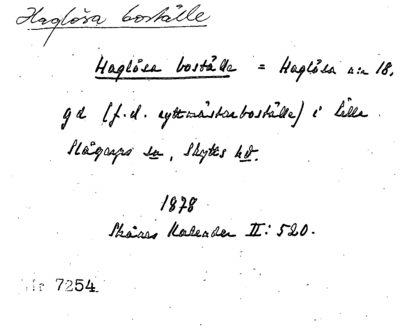 Haglösa boställe
Haglösa boställe = Haglösa n:r 18,
gd (f.d. ryttmästarboställe) i Lilla
Slågarps sn, Skytts hd.
1878
Skånes Kalender II: 520.
Nr 7254